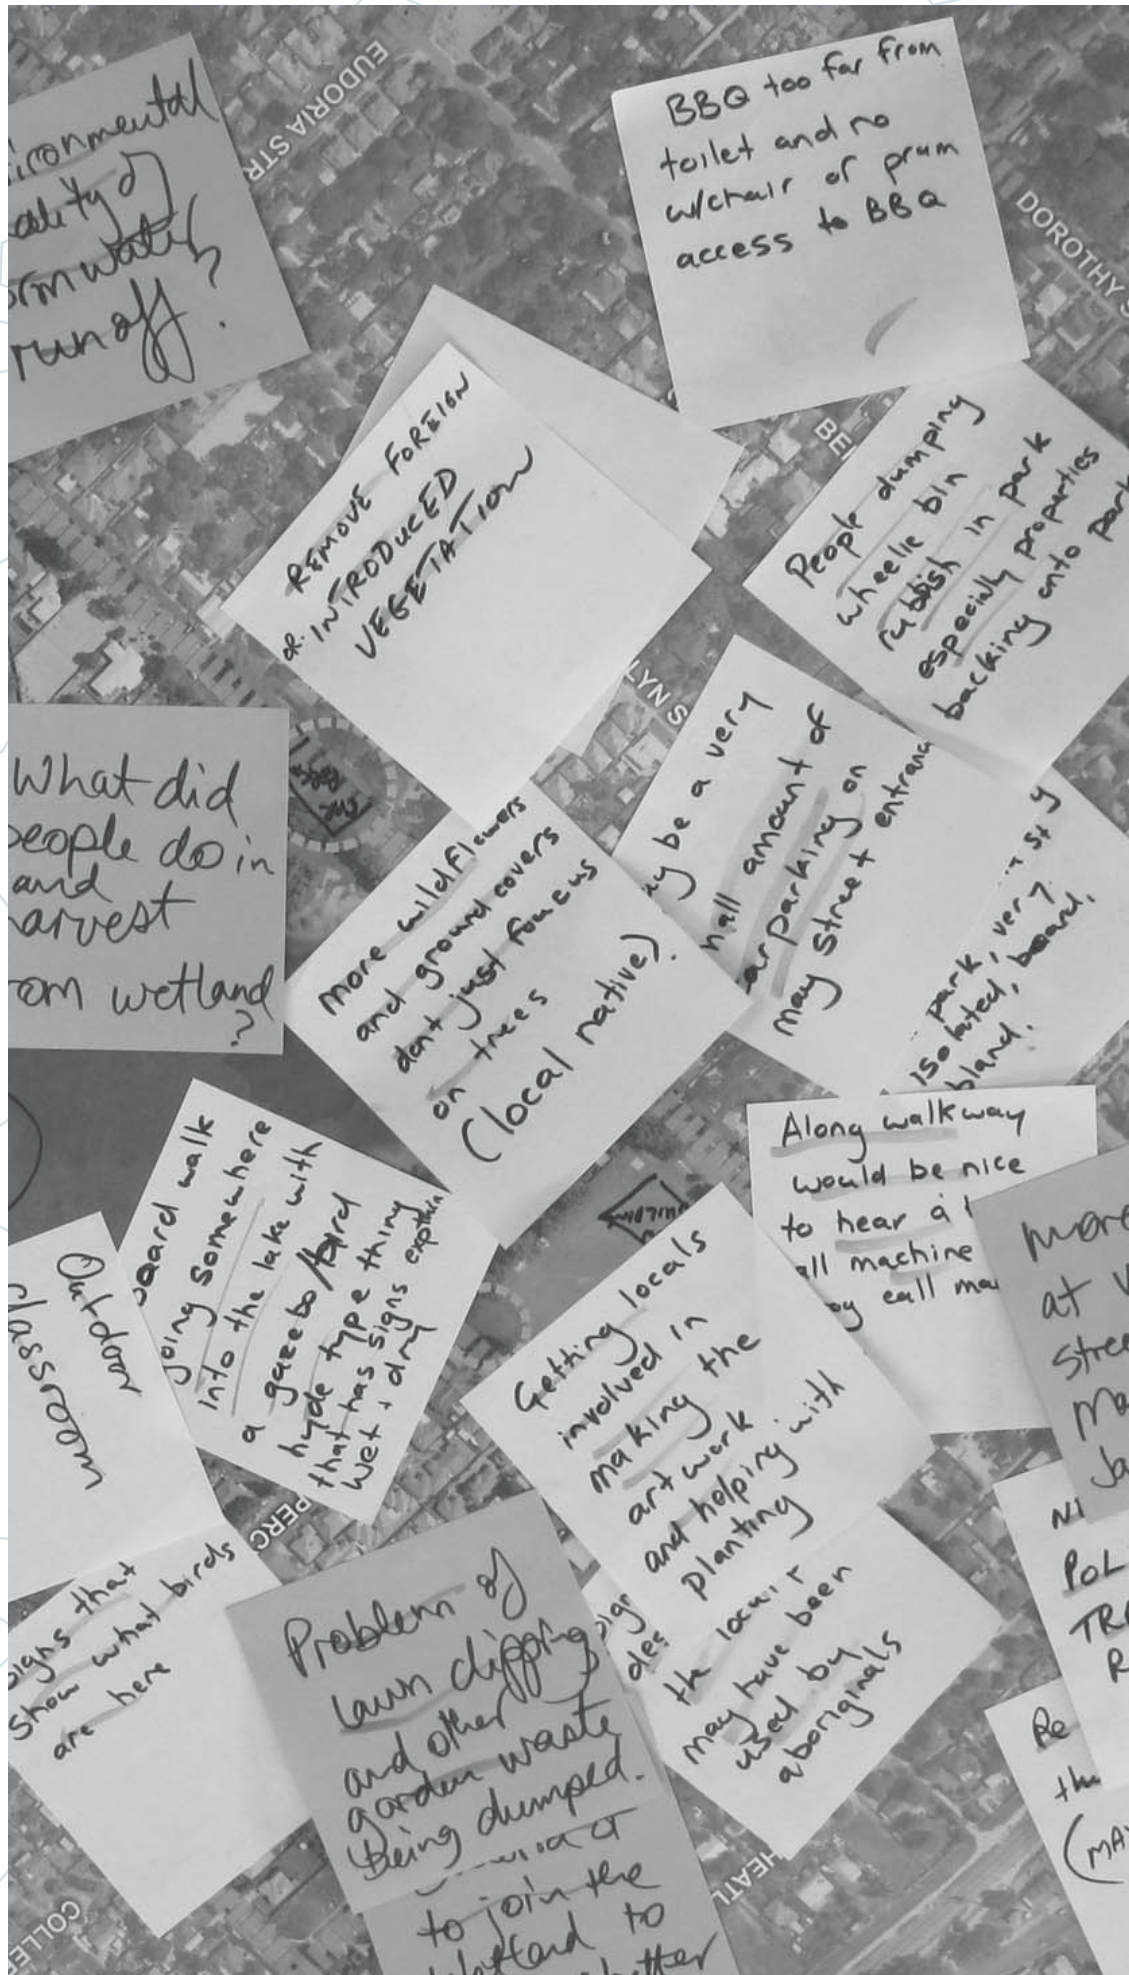 EUDORIA STR
ironmental
ality of
orm water
runoff?
BBQ too far from
toilet and no
w/chair or pram
access to BBQ
DOROTHY S
REMOVE FOREIGN
or. INTRODUCED
VEGETATION
BE
People dumping
wheelie bin
rubbish in park
especially properties
backing onto park
LYN S
What did
people do in
and
arvest
om wetland
?
more wildflowers
and ground covers
dont just foucus
on trees
(local native).
ay be a very
mall amount of
arparking on
may street entranc
park, very
isolated, board,
bland.
board walk
going somewhere
into the lake with
a gazebo/bird
hyde type thing
that has signs explain
wet + dry
Outdoor
classroom
Along walkway
would be nice
to hear a
all machine
call ma
more
at
stree
Ma
Ja
BUILDING
Getting locals
involved in
making the
art work
and helping with
planting
PERC
signs that
show what birds
are here
Problem of
lawn clipping
and other
garden waste
being dumped.
to join the
wetland to
sign
des
the locair
may have been
used by
aboriginals
NI
POL
TRA
R
Re
the
(MAY
HEATL
COLLE